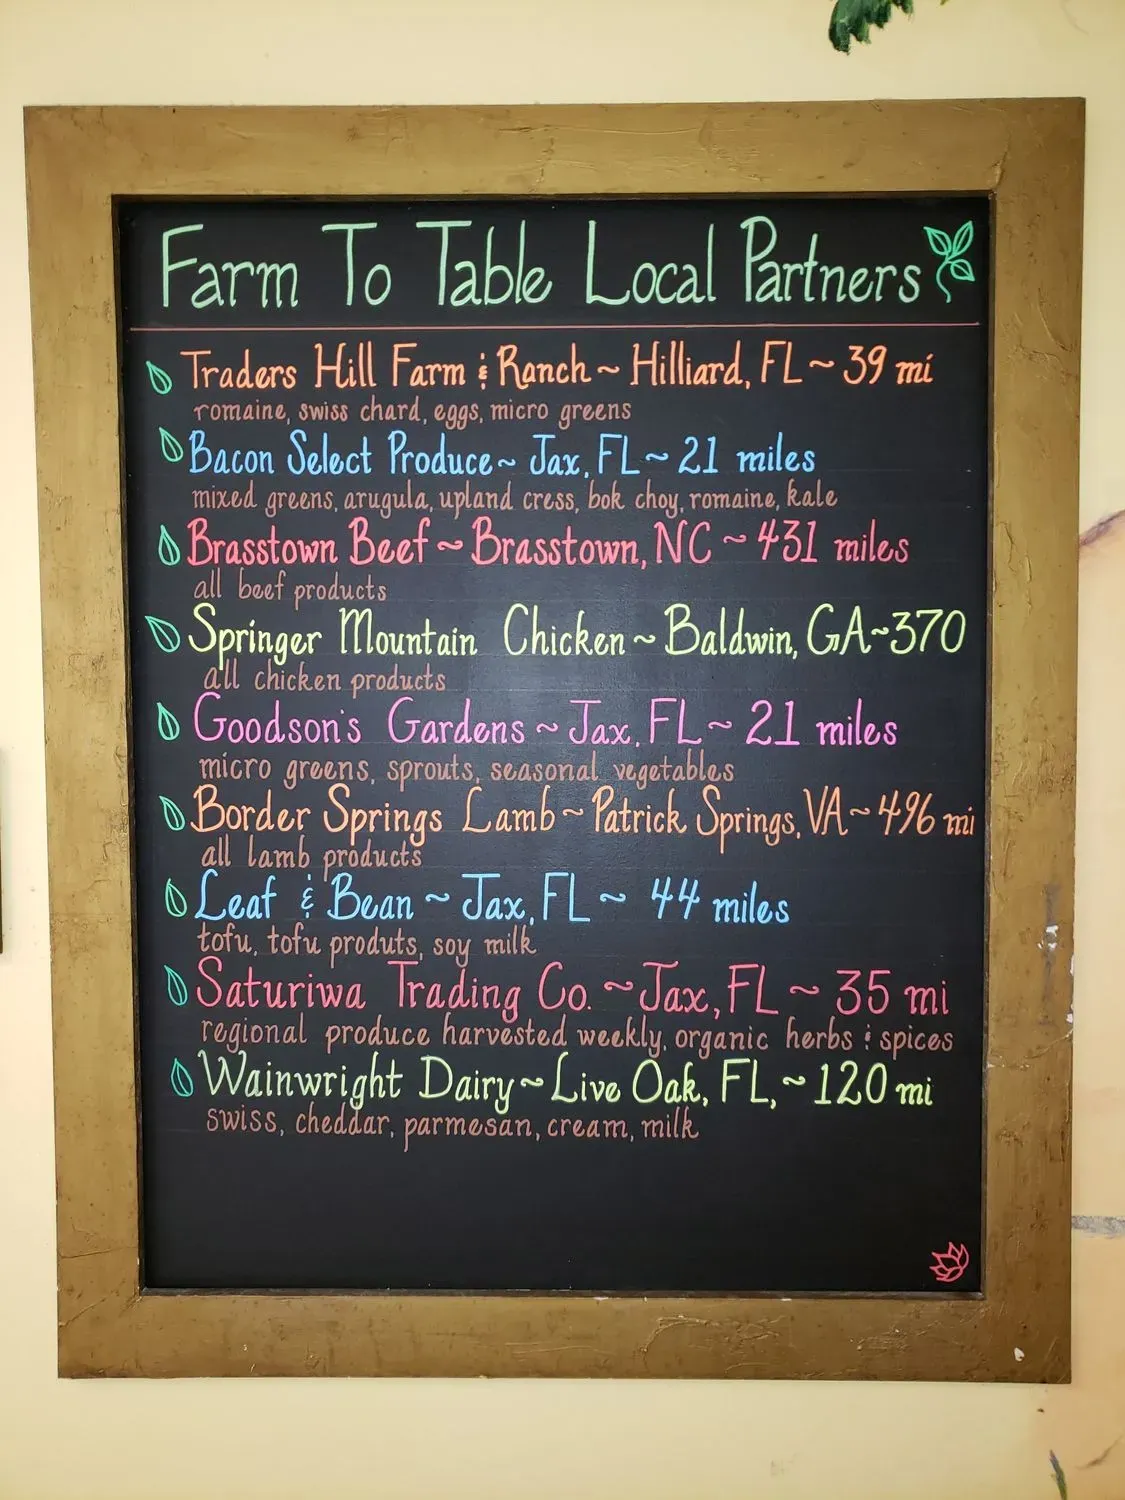 Farm To Table Local Partners
Traders Hill Farm & Ranch ~ Hilliard, FL ~ 39 mi
romaine, swiss chard, eggs, micro greens
Bacon Select Produce ~ Jax, FL ~ 21 miles
mixed greens, arugula, upland cress, bok choy, romaine, kale
Brasstown Beef ~ Brasstown, NC ~ 431 miles
all beef products
Springer Mountain Chicken ~ Baldwin, GA ~ 370
all chicken products
Goodson's Gardens ~ Jax, FL ~ 21 miles
micro greens, sprouts, seasonal vegetables
Border Springs Lamb ~ Patrick Springs, VA ~ 496 mi
all lamb products
Leaf & Bean ~ Jax, FL ~ 44 miles
tofu, tofu produts, soy milk
Saturiwa Trading Co. ~ Jax, FL ~ 35 mi
regional produce harvested weekly, organic herbs & spices
Wainwright Dairy ~ Live Oak, FL, ~ 120 mi
swiss, cheddar, parmesan, cream, milk